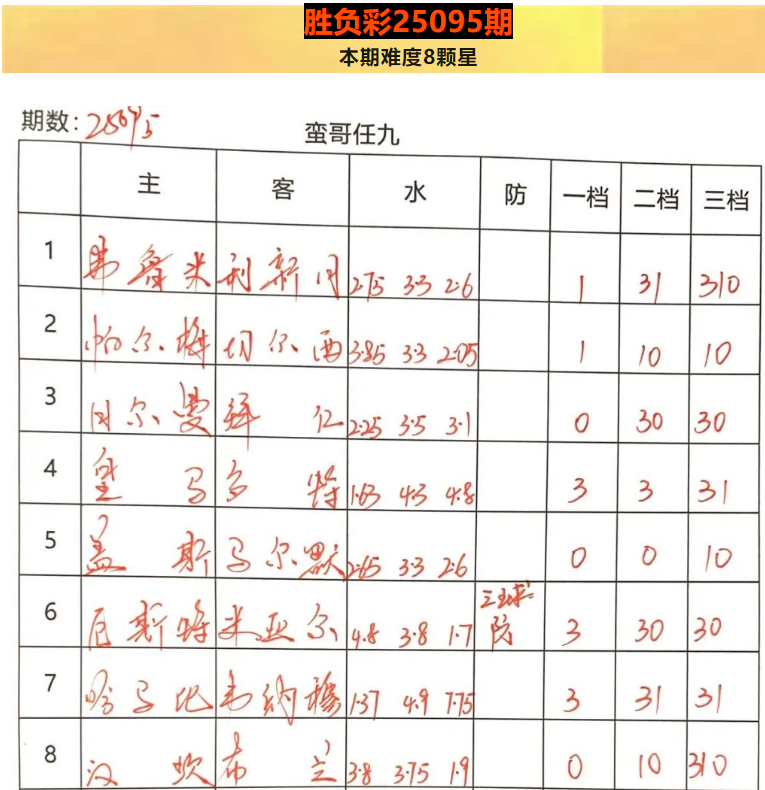 胜负彩25095期
本期难度8颗星
期数: 25095
蛮哥任九
主 客 水 防 一档 二档 三档
1 弗鲁米 利新月 2.75 3.3 2.6 1 31 310
2 帕尔梅 切尔西 3.85 3.3 2.05 1 10 10
3 日尔曼 拜仁 2.25 3.5 3.1 0 30 30
4 皇马 多特 1.63 4.3 4.8 3 3 31
5 盖斯 马尔默 2.65 3.3 2.6 0 0 10
6 厄斯特 米亚尔 4.8 3.8 1.7 三球防 3 30 30
7 哈马比 韦纳穆 1.37 4.9 7.75 3 31 31
8 汉坎 布兰 3.8 3.75 1.9 0 10 310